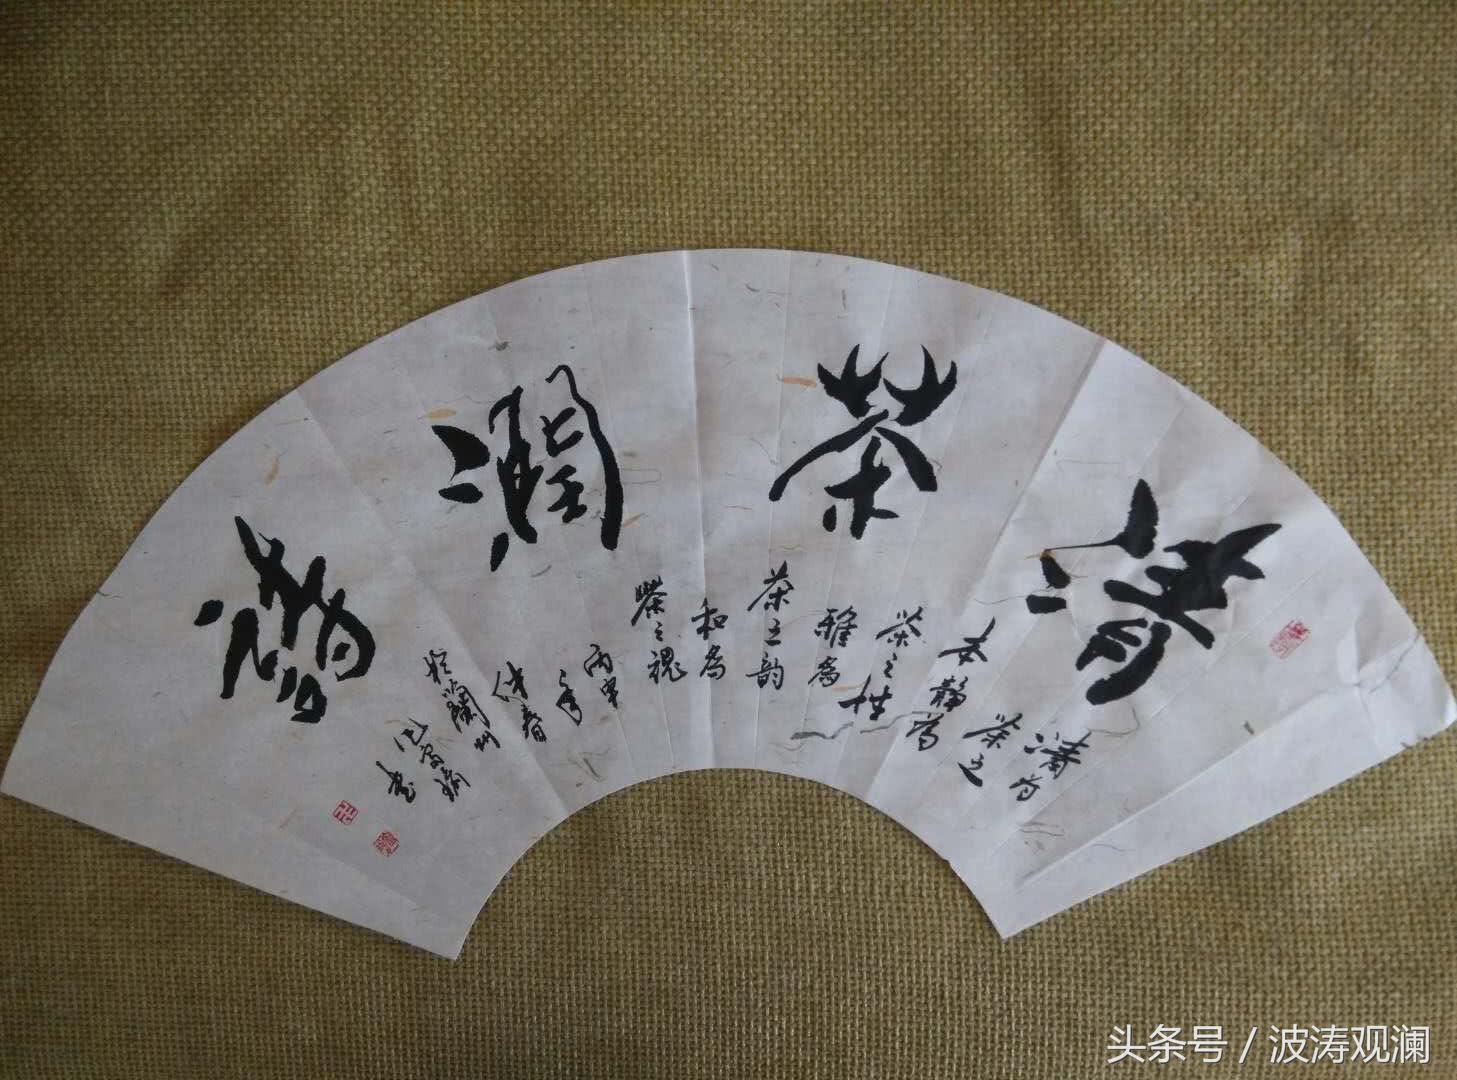 清茶潤詩
清为
茶之
本静為
茶之性
雅為
茶之韵
和為
茶之魂
丙申
之年
春
於蘭州
書
头条号 / 波涛观澜